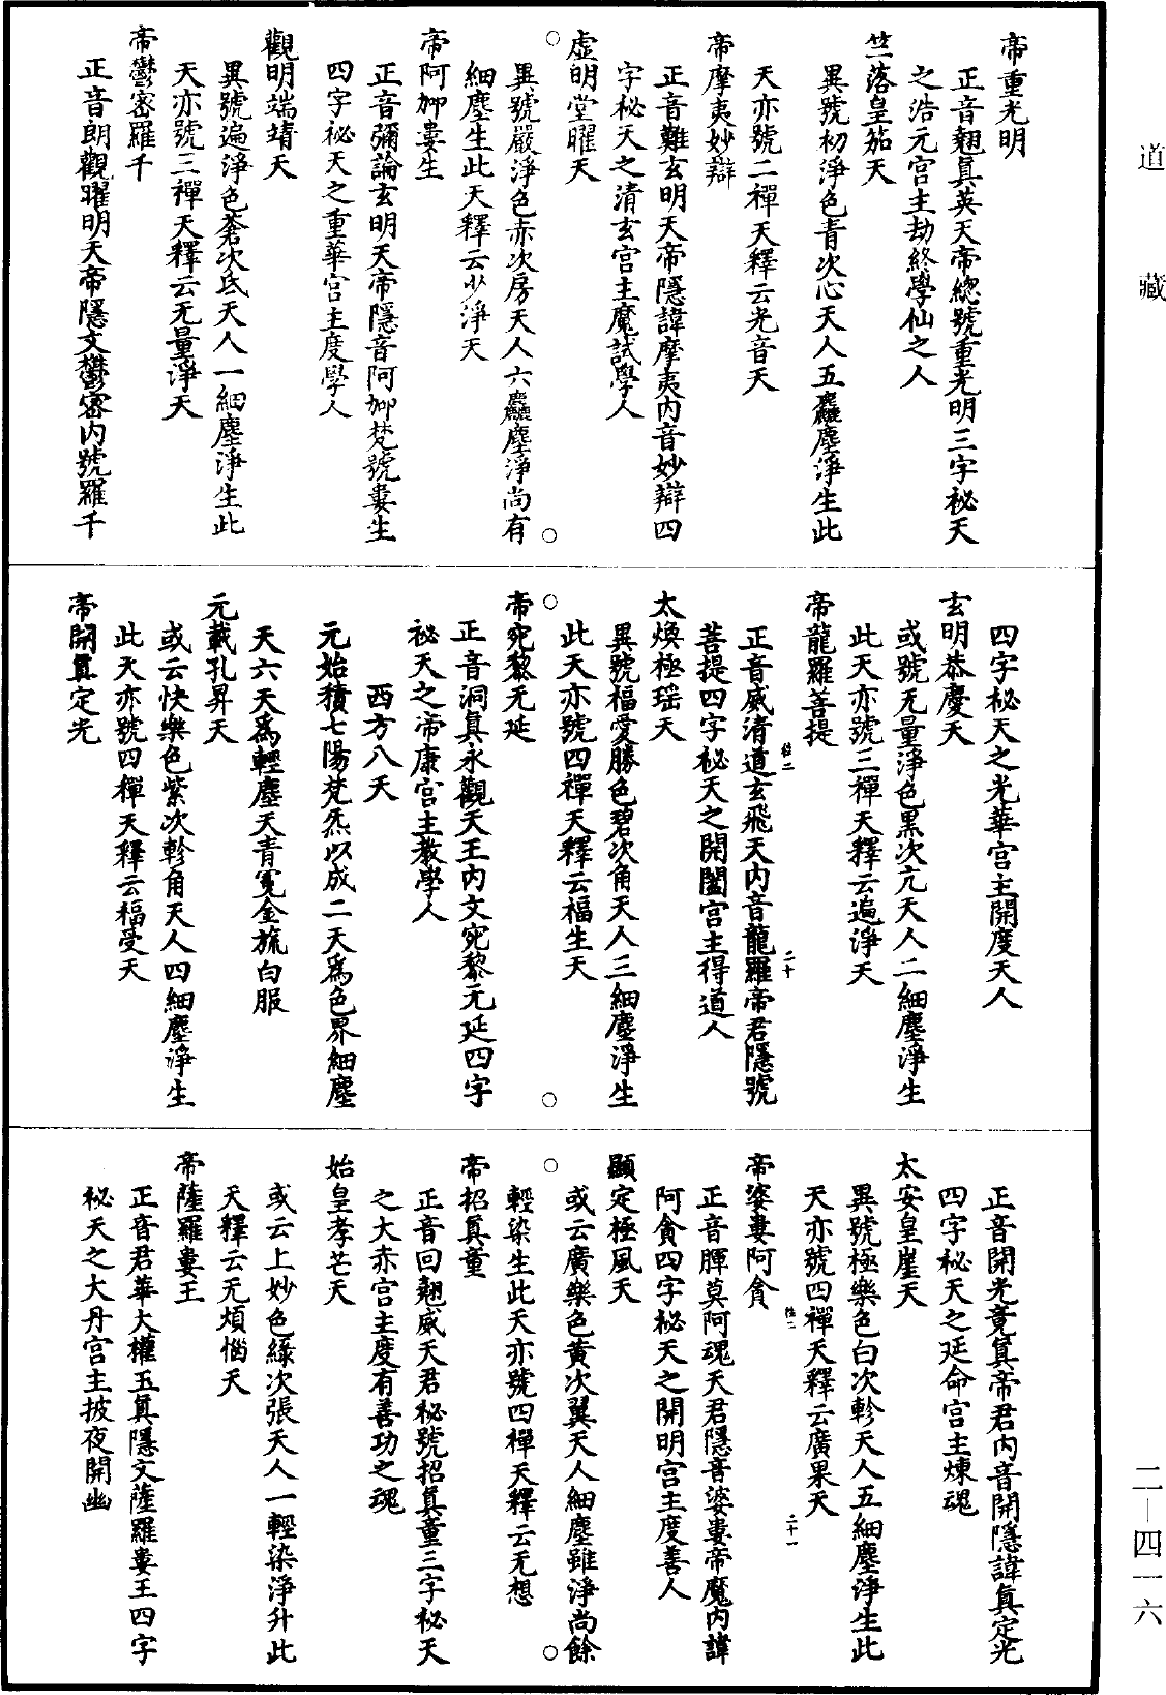 道藏
二—四一六
帝重光明
正音翹真英天帝緫號重光明三字祕天
之浩元宫主劫終學仙之人
竺落皇笳天
異號初淨色青次心天人五麤塵淨生此
天亦號二禪天釋云光音天
帝摩夷妙辯
正音難玄明天帝隱諱摩夷内音妙辯四
字秘天之清玄宫主魔試學人
虚明堂曜天
異號嚴淨色赤次房天人六麤塵淨尚有
細塵生此天釋云少淨天
帝阿䢼婁生
正音彌論玄明天帝隱音阿䢼梵號婁生
四字祕天之重華宫主度學人
觀明端靖天
異號遍淨色蒼次氐天人一細塵淨生此
天亦號三禪天釋云无量淨天
帝鬱密羅千
正音朗觀曜明天帝隱文鬱密内號羅千
四字祕天之光華宫主開度天人
玄明恭慶天
或號无量淨色黒次亢天人二細塵淨生
此天亦號三禪天釋云遍淨天
帝龍羅菩提
正音威清道玄飛天内音龍羅帝君隱號
菩提四字秘天之開闔宫主得道人
二十
太煥極瑶天
異號福愛勝色碧次角天人三細塵淨生
此天亦號四禪天釋云福生天
帝宛黎无延
正音洞真永觀天王内文宛黎无延四字
祕天之帝康宫主教學人
西方八天
元始積七陽梵炁以成二天爲色界細塵
天六天爲輕塵天青冕金旒白服
元載孔昇天
或云快樂色紫次軫角天人四細塵淨生
此天亦號四禪天釋云福受天
帝開真定光
正音開光竟真帝君内音開隱諱真定光
四字秘天之延命宫主煉魂
太安皇崖天
異號極樂色白次軫天人五細塵淨生此
天亦號四禪天釋云廣果天
帝婆婁阿貪
二十一
正音腪莫阿魂天君隱音婆婁帝魔内諱
阿貪四字祕天之開明宫主度善人
顯定極風天
或云廣樂色黄次翼天人細塵雖淨尚餘
輕染生此天亦號四禪天釋云无想
帝招真童
正音回翹威天君秘號招真童三字秘天
之大赤宫主度有善功之魂
始皇孝芒天
或云上妙色綠次張天人一輕染淨升此
天釋云无煩惱天
帝薩羅婁王
正音君華大權五真隱文薩羅婁王四字
秘天之大丹宫主披夜開幽